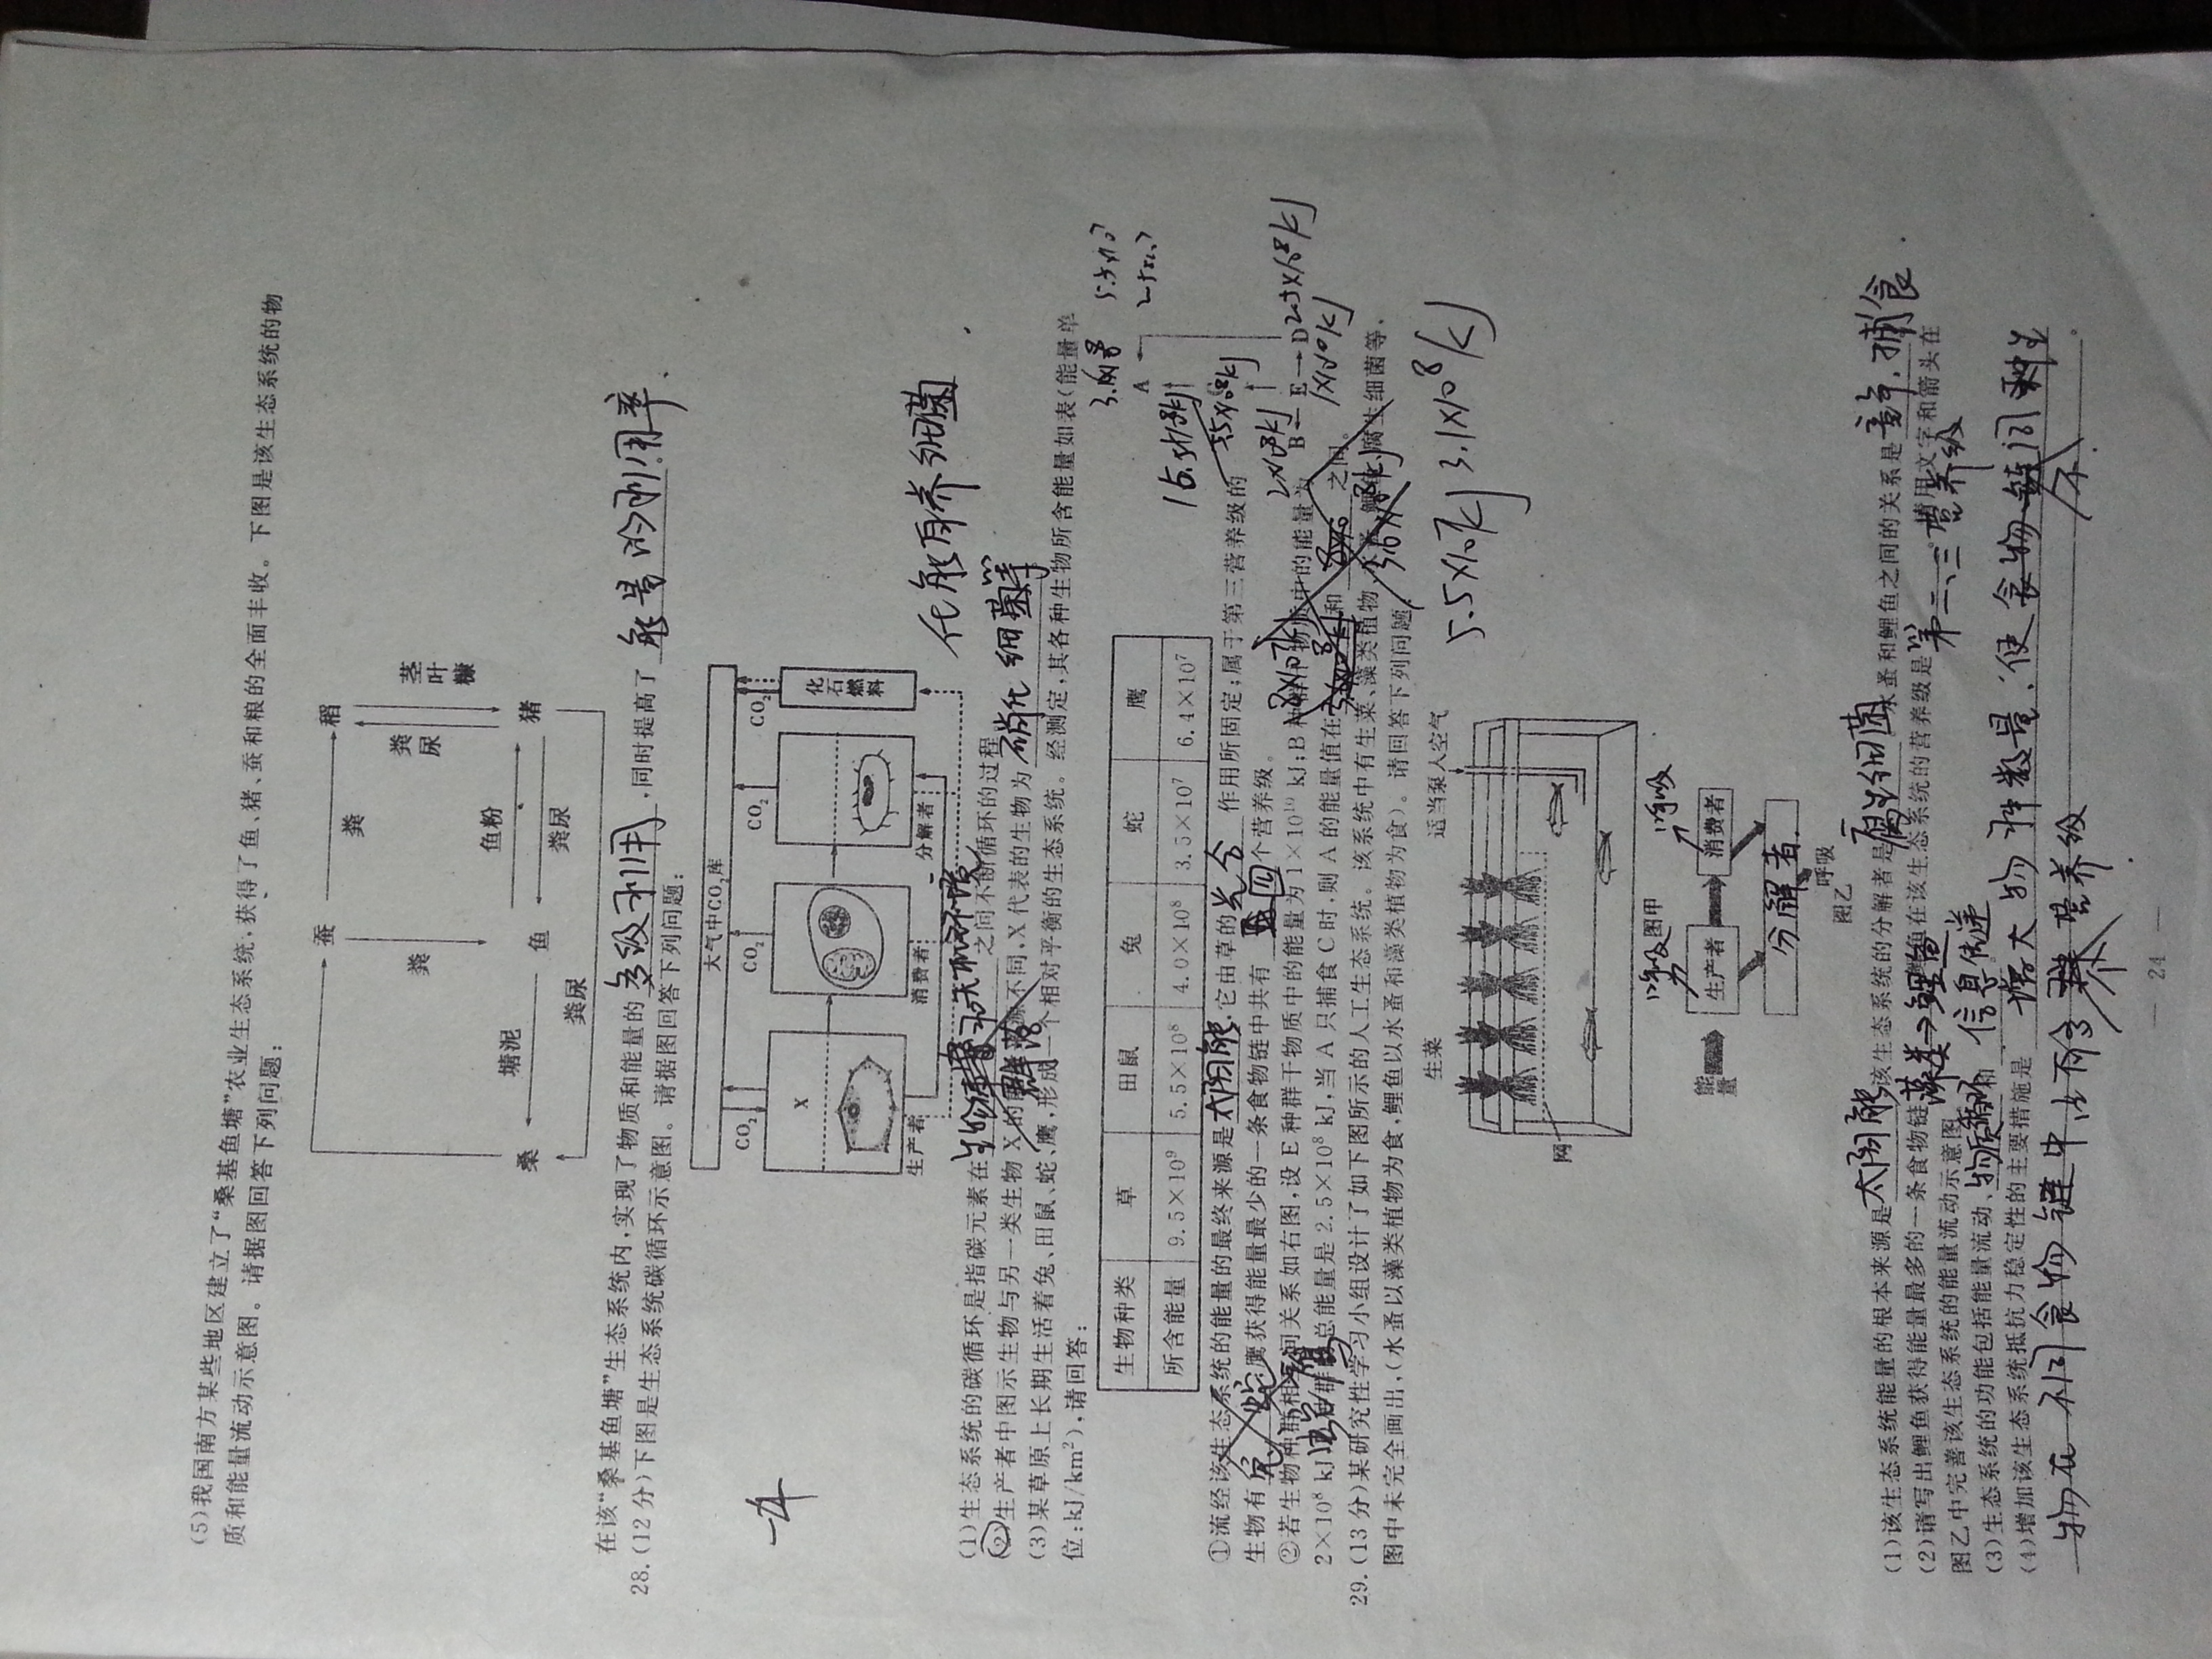 (5)我国南方某些地区建立了“桑基鱼塘”农业生态系统,获得了鱼、猪、蚕和粮的全面丰收。下图是该生态系统的物
质和能量流动示意图。请据图回答下列问题:
蚕
粪
稻
粪
粪尿
茎叶糠
鱼粉
塘泥
桑
鱼
猪
粪尿
粪尿
在该“桑基鱼塘”生态系统内,实现了物质和能量的多级利用,同时提高了能量的利用率.
28.(12分)下图是生态系统碳循环示意图。请据图回答下列问题:
大气中CO₂库
CO₂
CO₂
CO₂
CO₂
X
化石燃料
生产者
消费者
分解者
化能自养细菌
(1)生态系统的碳循环是指碳元素在生物群落和无机环境之间不断循环的过程
(2)生产者中图示生物与另一类生物X的 来源不同,X代表的生物为硝化细菌等
群落
(3)某草原上长期生活着兔、田鼠、蛇、鹰,形成一个相对平衡的生态系统。经测定,其各种生物所含能量如表(能量单
位:kJ/km²),请回答:
生物种类 草 田鼠 兔 蛇 鹰
所含能量 9.5×10⁹ 5.5×10⁸ 4.0×10⁸ 3.5×10⁷ 6.4×10⁷
A
①流经该生态系统的能量的最终来源是太阳能,它由草的光合作用所固定;属于第三营养级的
生物有 鹰获得能量最少的一条食物链中共有四个营养级。
蛇、鹰
②若生物种群相互间关系如右图,设E种群干物质中的能量为1×10¹⁰ kJ;B种群干物质中的能量为
2×10⁸kJ B←E→D 2.5×10⁸kJ
1×10¹⁰kJ
2×10⁸ kJ 总能量是2.5×10⁸ kJ,当A只捕食C时,则A的能量值在 和 之间。
29.(13分)某研究性学习小组设计了如下图所示的人工生态系统。该系统中有生菜、藻类植物、水蚤、鲤鱼、腐生细菌等,
图中未完全画出,(水蚤以藻类植物为食,鲤鱼以水蚤和藻类植物为食)。请回答下列问题
5.5×10⁷kJ 3.1×10⁸kJ
生菜
适当泵入空气
网
图甲
呼吸
呼吸
能量
生产者
消费者
分解者.
呼吸
图乙
(1)该生态系统能量的根本来源是太阳能该生态系统的分解者是腐生细菌 水蚤和鲤鱼之间的关系是竞争,捕食.
(2)请写出鲤鱼获得能量最多的一条食物链藻类→鲤鱼 鲤鱼在该生态系统的营养级是第二、三营养级 请用文字和箭头在
图乙中完善该生态系统的能量流动示意图
(3)生态系统的功能包括能量流动、物质循环和信息传递
(4)增加该生态系统抵抗力稳定性的主要措施是增大物种数量,使食物链同种生
物在不同食物链中占不同营养级
— 24 —